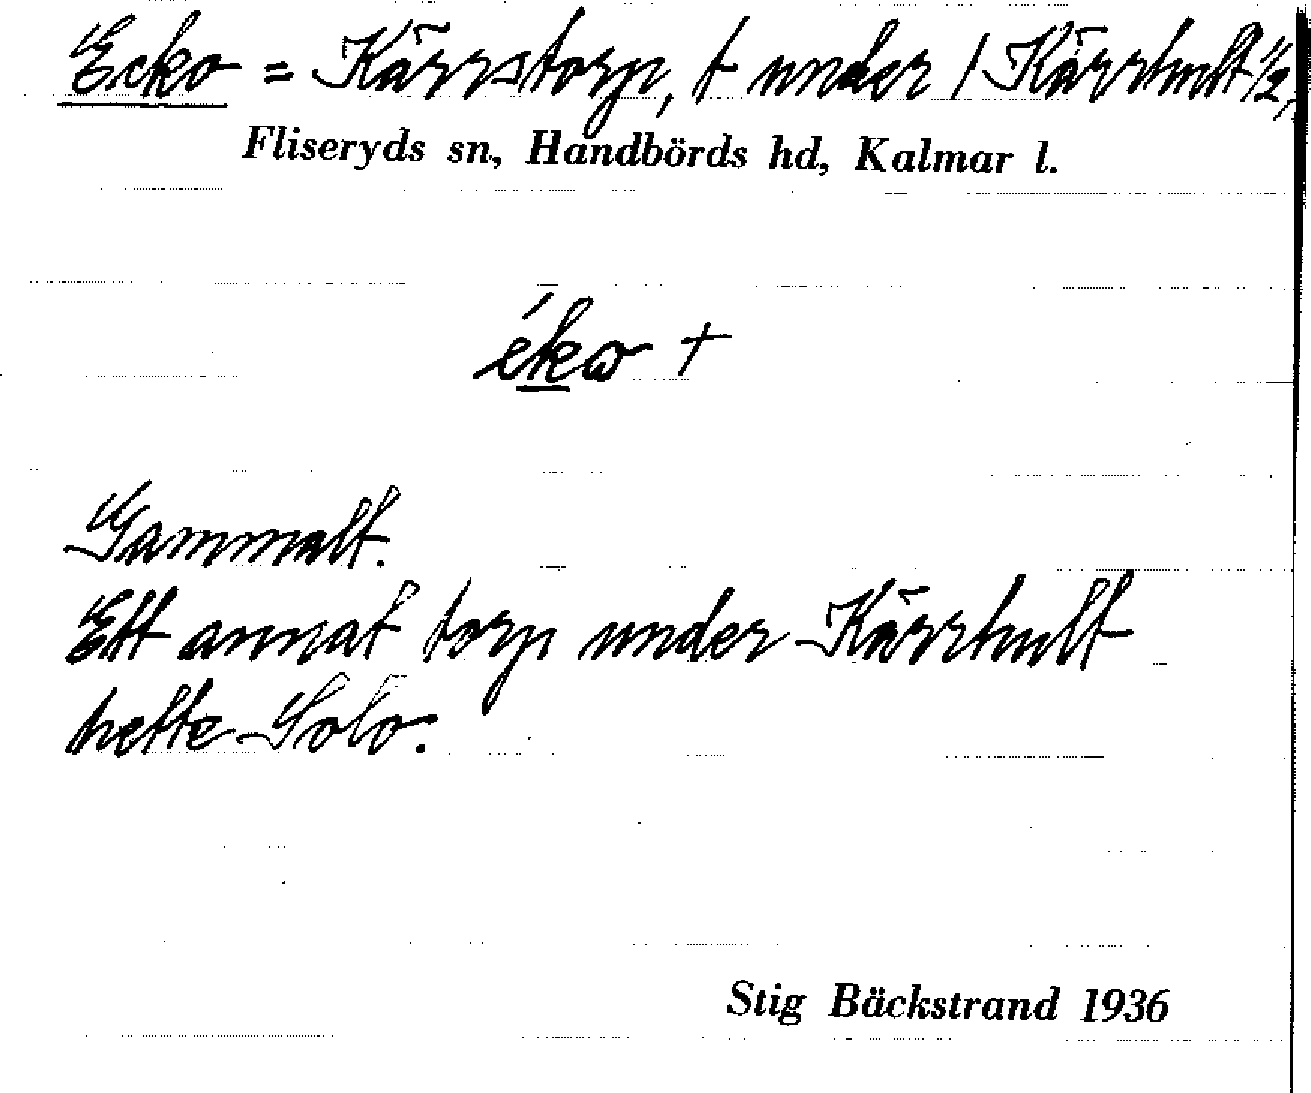 Ecko = Kärrstorp, t under / Kärrhult 1/2,
Fliseryds sn, Handbörds hd, Kalmar l.
éko +
Gammalt.
Ett annat torp under Kärrhult
hette Solo.
Stig Bäckstrand 1936